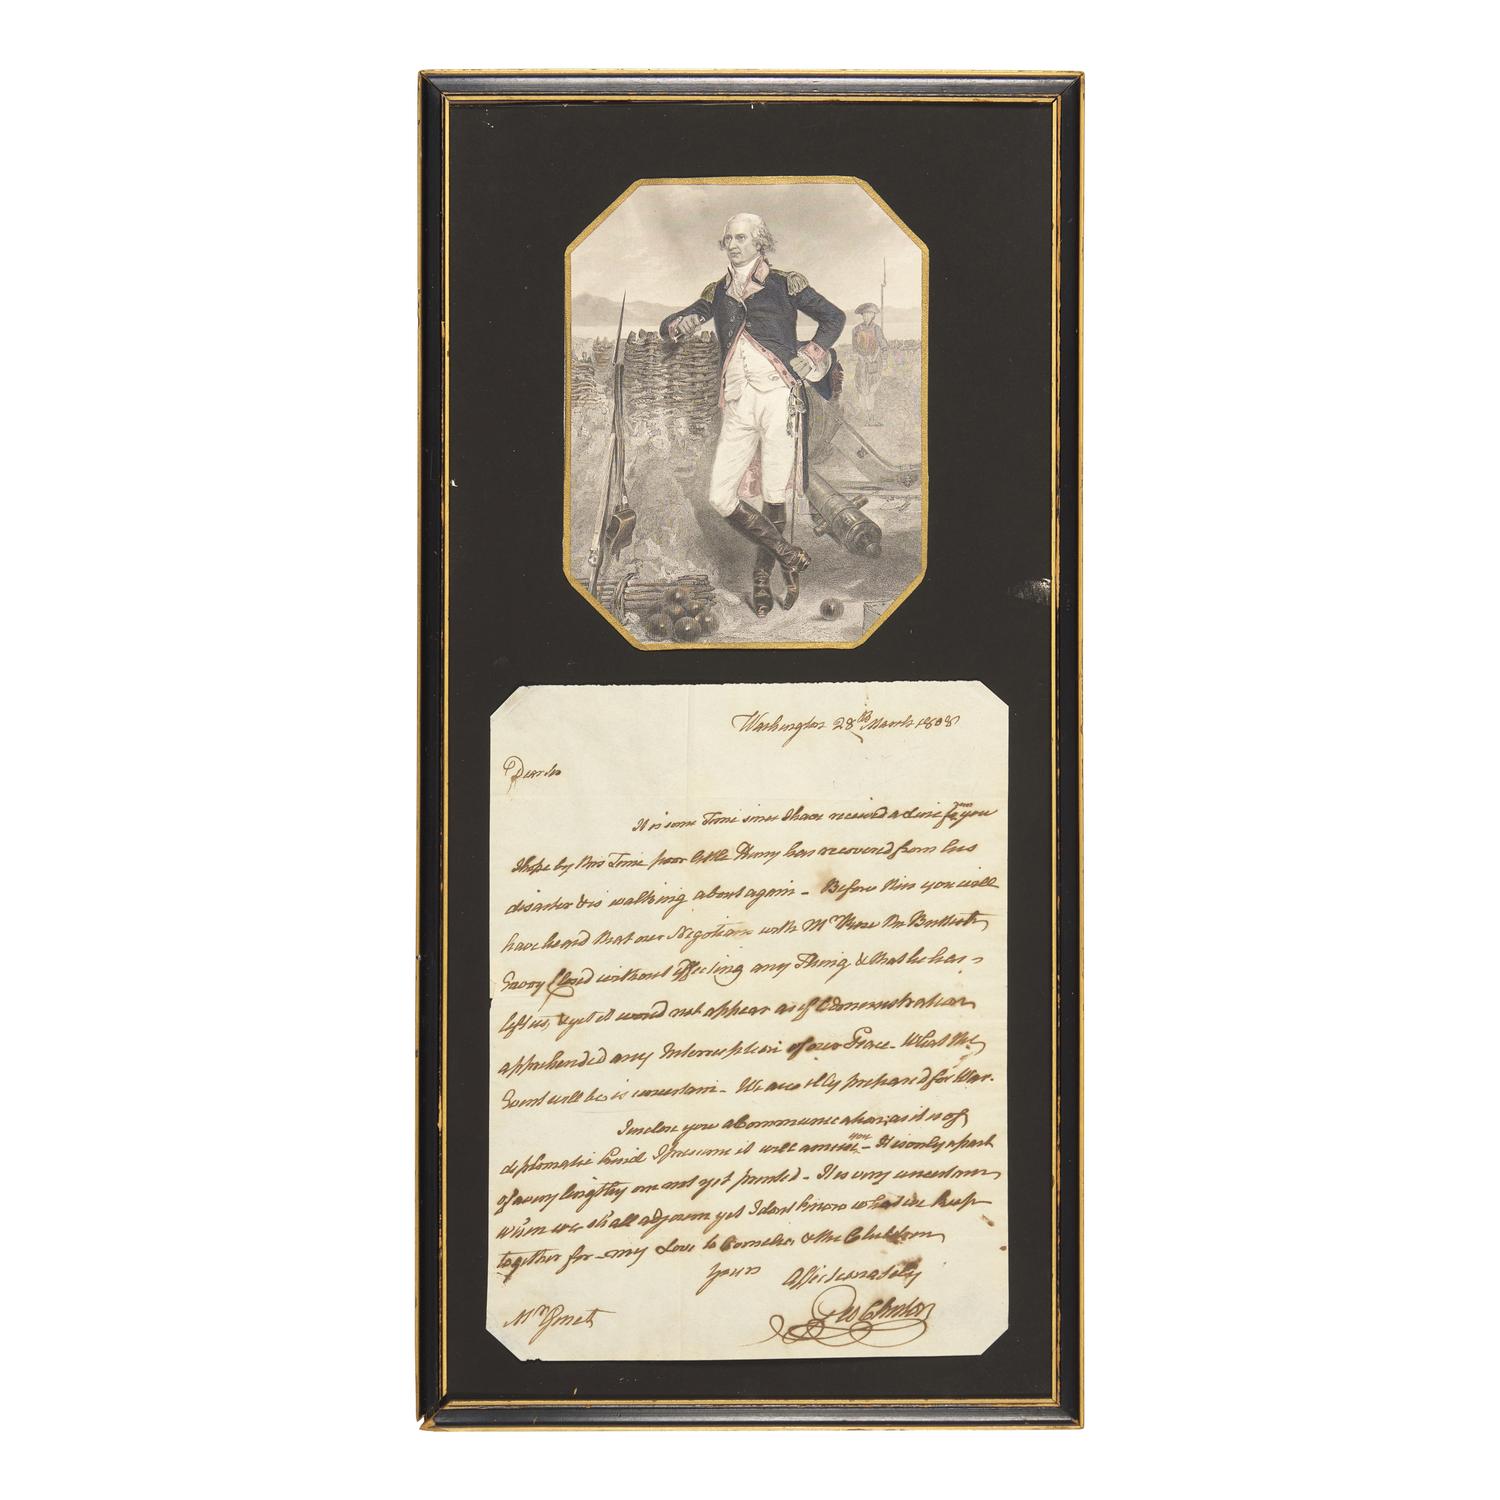 Washington 28th March 1808
Dear Sir
It is some Time since I have received a line from you
I hope by this Time poor little Henry has recovered from his
disaster & is walking about again - Before this you will
have heard that our Negotiation with Mr Rose the British
Envoy Closed without effecting any Thing & that he has
left us, & yet it would not appear as if Administration
apprehended any Interruption of our Peace - What the
Event will be is uncertain - We are illy prepared for War.
I inclose you a Communication, as it is of
diplomatic kind I presume it will amuse you - It is only a part
of a very lengthy one not yet printed - It is very uncertain
when we shall adjourn yet I dont know what we keep
together for - my Love to Cornelia & the Children
Yours Affectionately
Geo Clinton
Mr Genet